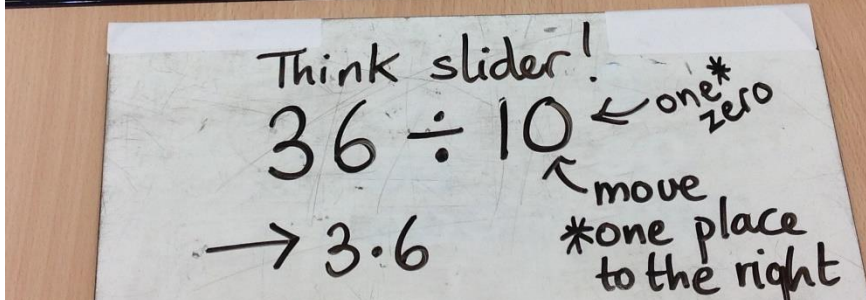 Think slider!
36 ÷ 10 ← one*
zero
↖ move
→ 3.6 *one place
to the right